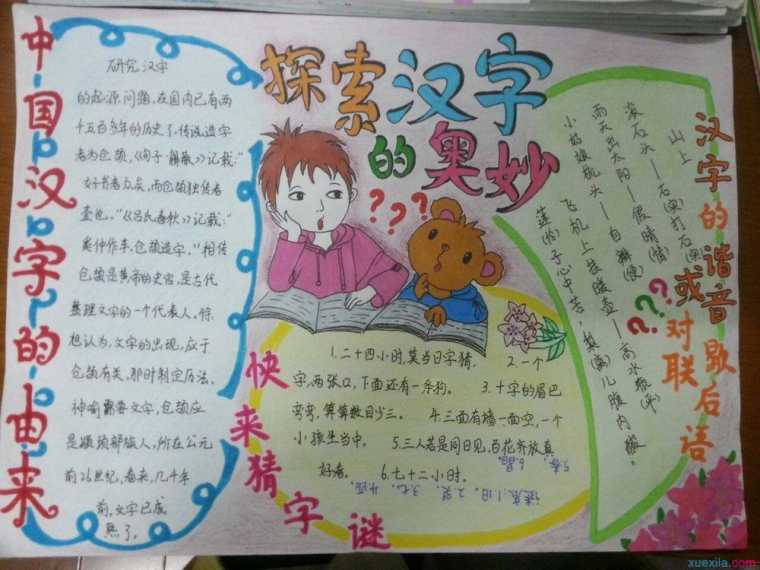 探索汉字
的奥妙
中国汉字的由来
研究汉字
的起源问题,在国内已有两
千五百多年的历史了,传说造字
者为仓颉,《荀子·解蔽》记载:"
好书者众矣,而仓颉独传者
壹也。"《吕氏春秋》记载:"
奚仲作车,仓颉造字。"相传
仓颉是黄帝的史官,是古代
整理文字的一个代表人,
想认为,文字的出现,应于
仓颉有关,那时制定历法,
需要文字,仓颉应
是
部族人,所在公元
前26世纪,看来,几千年
前,文字已成
熟了。
快来猜字谜
1.二十四小时,莫当日字猜。 2.一个
字,两张口,下面还有一条狗。 3.十字的尾巴
弯弯,算算数目少三。 4.三面有墙一面空,一个
小孩坐当中。 5.三人若是同日见,百花齐放真
好看。 6.七十二小时。
汉字的谐音歇后语
或对联
山上
滚石头——石(实)打石(实)
雨天出太阳——假晴(情)
小姑娘梳头——自辫(便)
飞机上挂暖壶——高水瓶(平)
莲(怜)子心中苦,梨(离)儿腹内酸。
xuexila.com